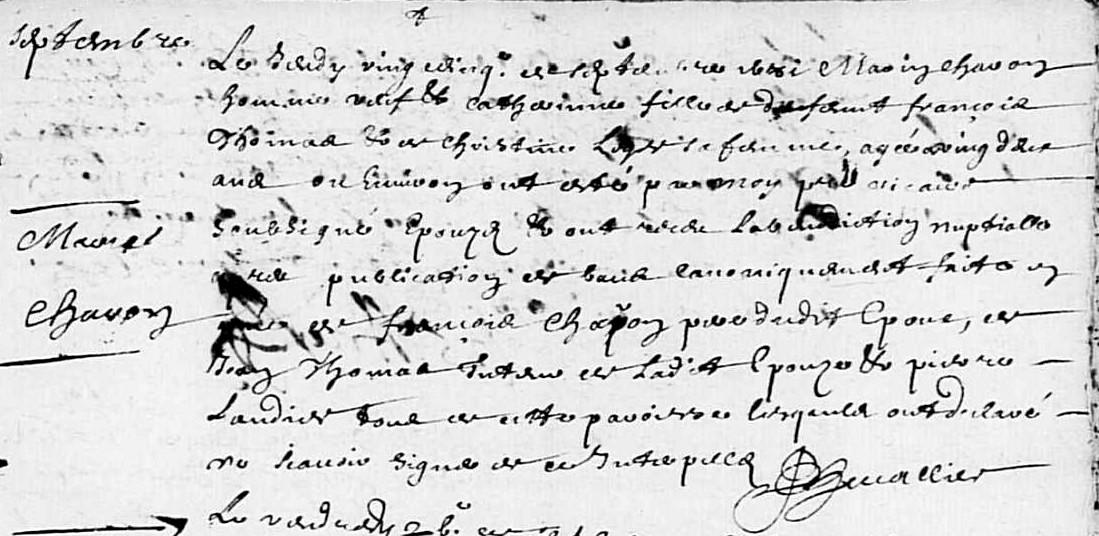 septembre
Le jeudy vingt cinq.e de septembre 1681 Marin Chavon
homme veuf & Catherinne fille de defunt françois
Thomas & de Christine sa femme, agée de vingt deux
ans ou Environ ont esté par moy pbre vicaire
Mariage
soubsigné Epouzés & ont receu La benediction nuptialle
publication de bans canoniquement faite en
Chavon
de françois Chavon pere dudit Epoux, de
Jean Thomas tuteur de Ladite Epouze & pierre
Landier tous de cette paroisse lesquels ont declaré
ne scavoir signer de ce Interpellés Chevallier
Le